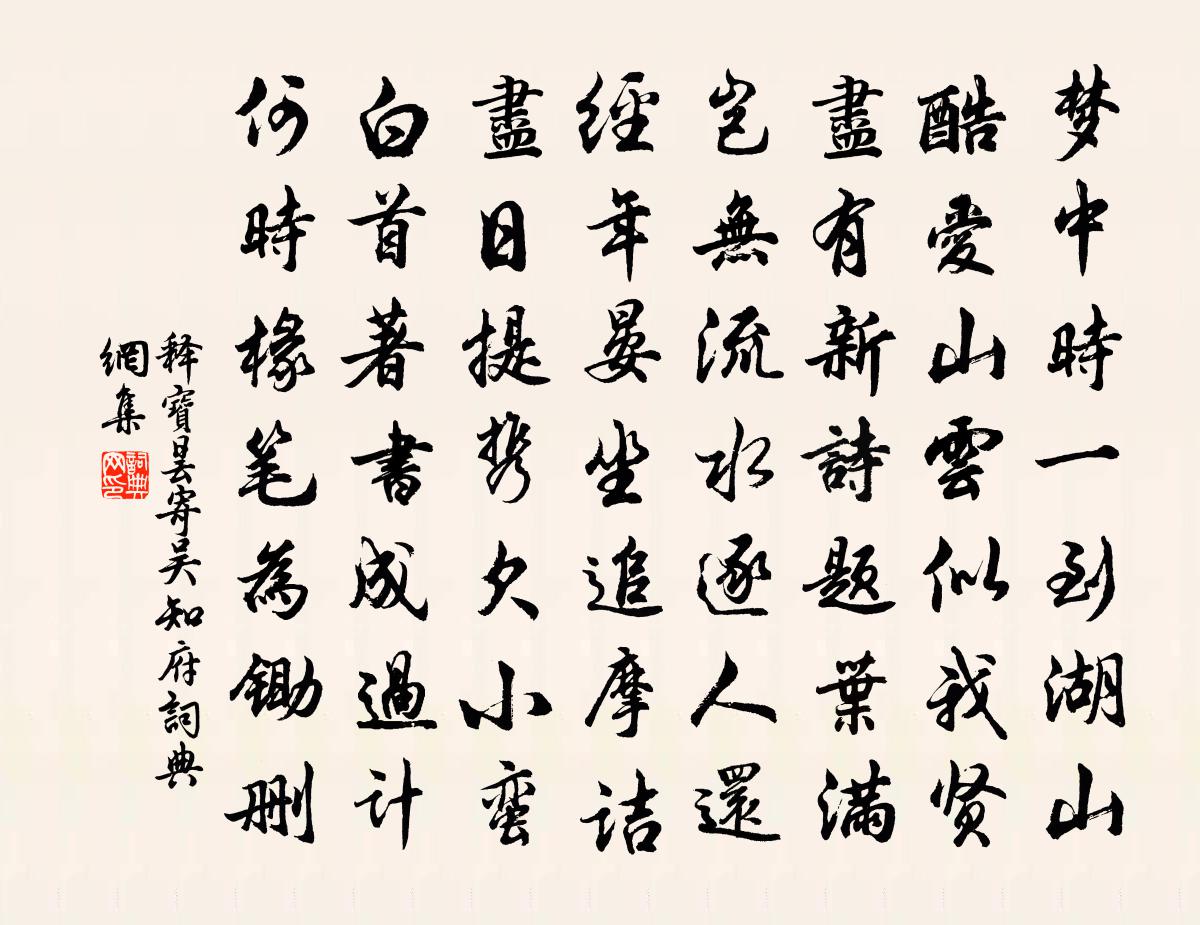 梦中時一到湖山
酷愛山雲似我贤
盡有新詩题葉满
豈無流水逐人還
經年晏坐追摩詰
盡日提携欠小蛮
白首著書成過计
何時椽笔為鋤删
释寶昙寄吴知府詞典
網集
詞典
网印